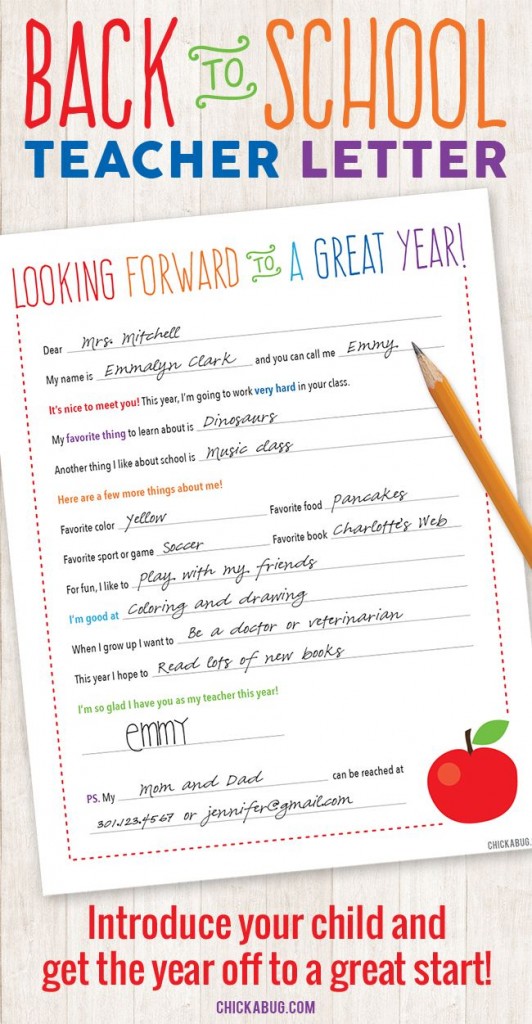 BACK TO SCHOOL
TEACHER LETTER
LOOKING FORWARD TO A GREAT YEAR!
Dear Mrs. Mitchell
My name is Emmalyn Clark and you can call me Emmy.
It's nice to meet you! This year, I'm going to work very hard in your class.
My favorite thing to learn about is Dinosaurs
Another thing I like about school is Music class
Here are a few more things about me!
Favorite color Yellow Favorite food Pancakes
Favorite sport or game Soccer Favorite book Charlotte's Web
For fun, I like to Play with my friends
I'm good at Coloring and drawing
When I grow up I want to Be a doctor or veterinarian
This year I hope to Read lots of new books
I'm so glad I have you as my teacher this year!
emmy
PS. My Mom and Dad can be reached at
301.123.4567 or jennifer@gmail.com
CHICKABUG.
Introduce your child and
get the year off to a great start!
CHICKABUG.COM